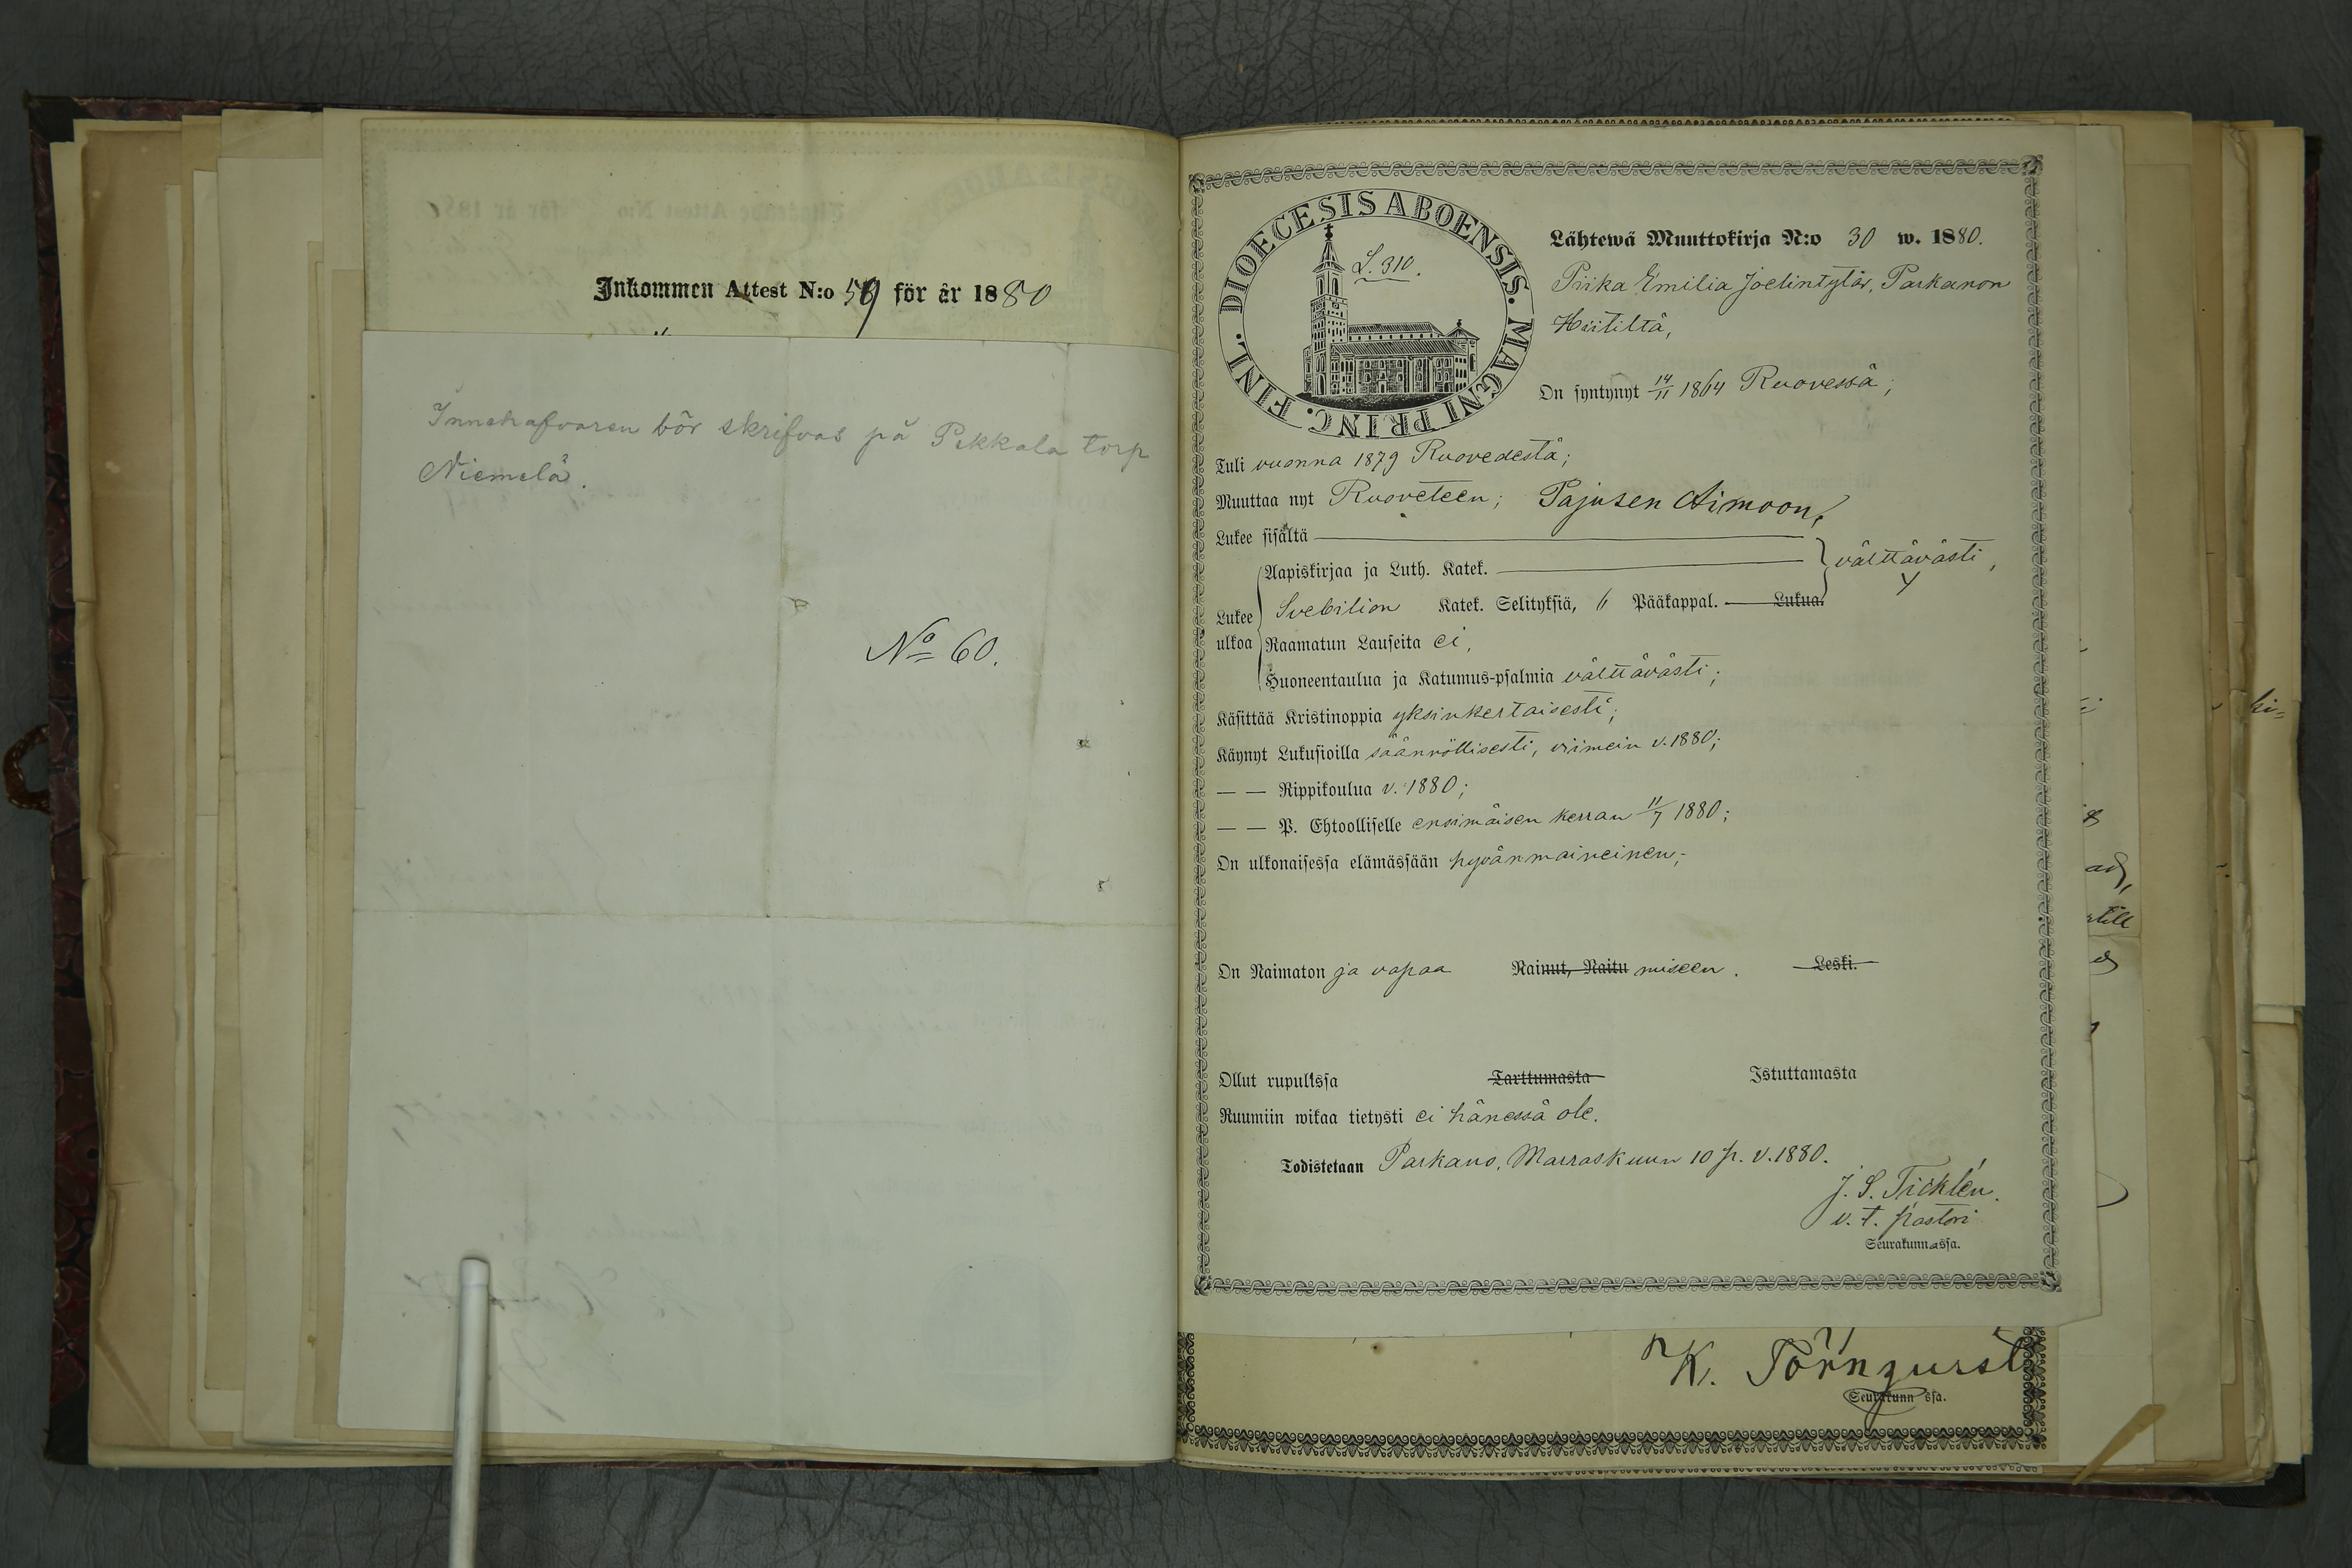 Inkommen Attest N:o 59 för år 1880
Innehafvaren bör skrifvas på Pekkala torp
Niemelä.
No 60.
DIOECESIS ABOENSIS. MAGNI PRINC. FINL.
S. 310.
Lähtewä Muuttokirja N:o 30 w. 1880.
Piika Emilia Joelintytär, Parkanon
On syntynyt 14/11 1864 Ruovessä;
Tuli vuonna 1879 Ruovedestä;
Muuttaa nyt Ruoveteen; Pajusen Aimoon,
Lukee sisältä
Aapiskirjaa ja Luth. Katek. välttävästi,
Lukee ulkoa
Svebilion Katek. Selityksiä, 6 Pääkappal. Lukua.
Raamatun Lauseita ei,
Huoneentaulua ja Katumus-psalmia välttävästi;
Käsittää Kristinoppia yksinkertaisesti;
Käynyt Lukusioilla säännöllisesti, viimein v. 1880;
— — Rippikoulua v. 1880;
— — P. Ehtoolliselle ensimäisen kerran 11/7 1880;
On ulkonaisessa elämässään hyvänmaineinen;
On Naimaton ja vapaa Nainut, Naitu miseen. Leski.
Ollut rupulissa Tarttumasta Istuttamasta
Ruumiin wikaa tietysti ei hänessä ole.
Todistetaan Parkano, Marraskuun 10 p. v. 1880.
J. S. Ticklén.
v. t. pastori
Seurakunnassa.
K. Törnqurst
Seurakunn ssa.